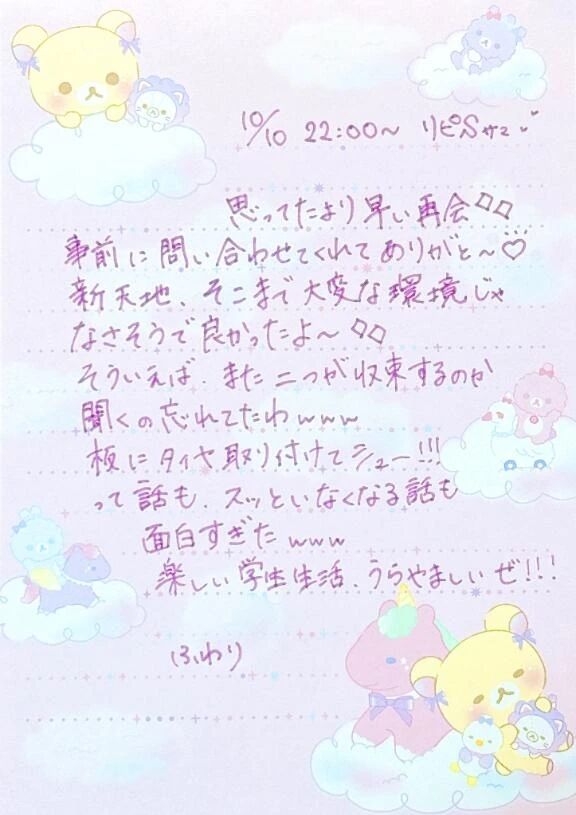 10/10 22:00〜 リピSサマ
思ってたより早い再会◇◇
事前に問い合わせてくれてありがと〜♡
新天地、そこまで大変な環境じゃ
なさそうで良かったよ〜◇◇
そういえば、また二つが収束するのか
聞くの忘れてたわwww
板にタイヤ取り付けてシュー!!!
って話も、スッといなくなる話も
面白すぎたwww
楽しい学生生活、うらやましいぜ!!!
ふわり